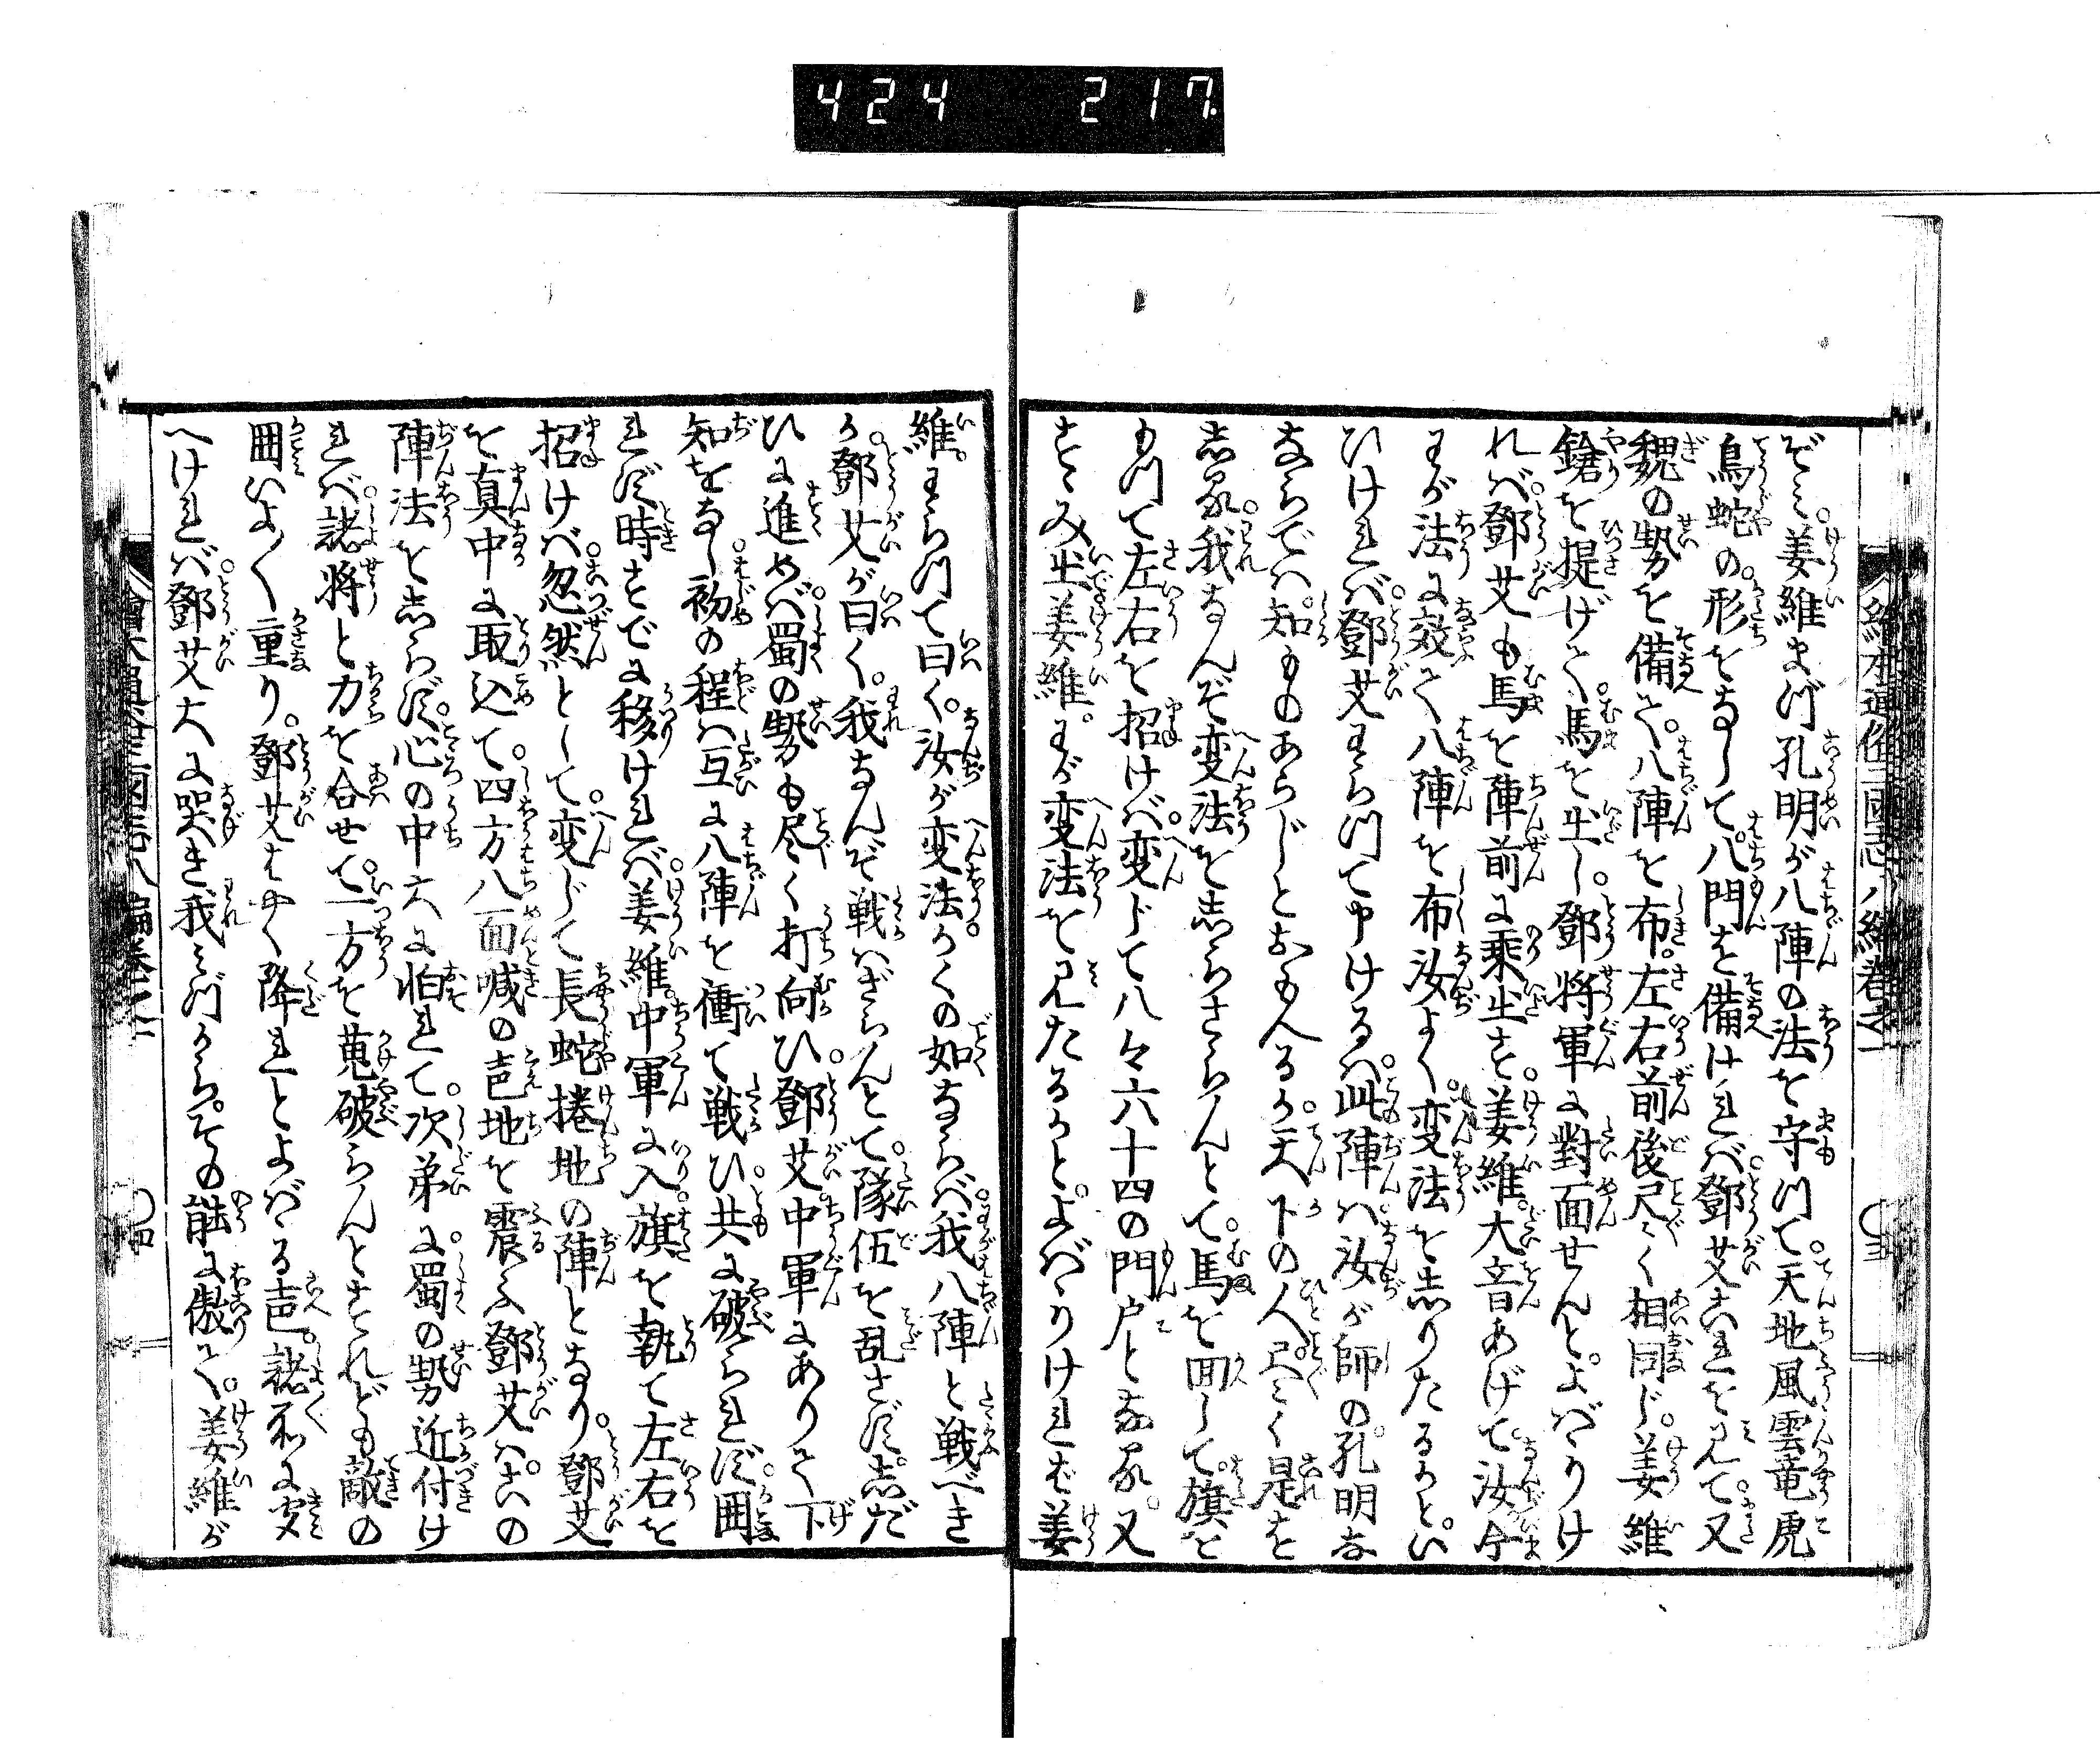 424 217
絵本通俗三國志八編巻之一
ぞく。姜維まづ孔明が八陣の法を守つて。天地風雲竜虎
鳥蛇の。形をなして。八門を備ければ鄧艾これを見て。又
魏の勢を備て。八陣を布。左右前後尽く相同じ。姜維
鎗を提げて。馬を出し。鄧将軍に對面せんと。よばゝりけ
れば。鄧艾も馬を陣前に乗出す。姜維。大音あげて。汝今
わが法に效て八陣を布。汝よく。変法を志りたるかと。い
ひければ。鄧艾わらつて申けるは。此陣は。汝が師の。孔明な
ならでは。知ものあらじとおもへるか。天下の人。尽く是を
志る。我なんぞ変法を志らざらんとて。馬を回して。旗を
もつて左右を招けば。変じて八々六十四の門戸となる。又
すゝみ出姜維。わが変法を見たるかと。よばゝりければ姜
維。わらつて曰く。汝が変法。かくの如ならば。我八陣と戦べき
か。鄧艾が曰く。我なんぞ戦はざらんとて。隊伍を乱さず。志だ
ひに進めば。蜀の勢も尽く打向ひ。鄧艾。中軍にありて下
知をなし。初の程は互に八陣を衝て戦ひ。共に破られず。囲
れず。時すでに移ければ。姜維。中軍に入。旗を執て左右を
招けば。忽然として。変じて長蛇捲地の陣となり。鄧艾
を真中に取込て。四方八面喊の声地を震ふ。鄧艾は。この
陣法を志らず。心の中大に怕れて。次第に。蜀の勢近付け
れば。諸将と力を合せて。一方を蒐破らんとすれども敵の
囲いよ〳〵重り。鄧艾はやく降れとよばゝる声。諸所に聞
へければ。鄧艾大に哭き。我みづから。その能に傲て。姜維が
繪本通俗三國志八編巻之一
〇四